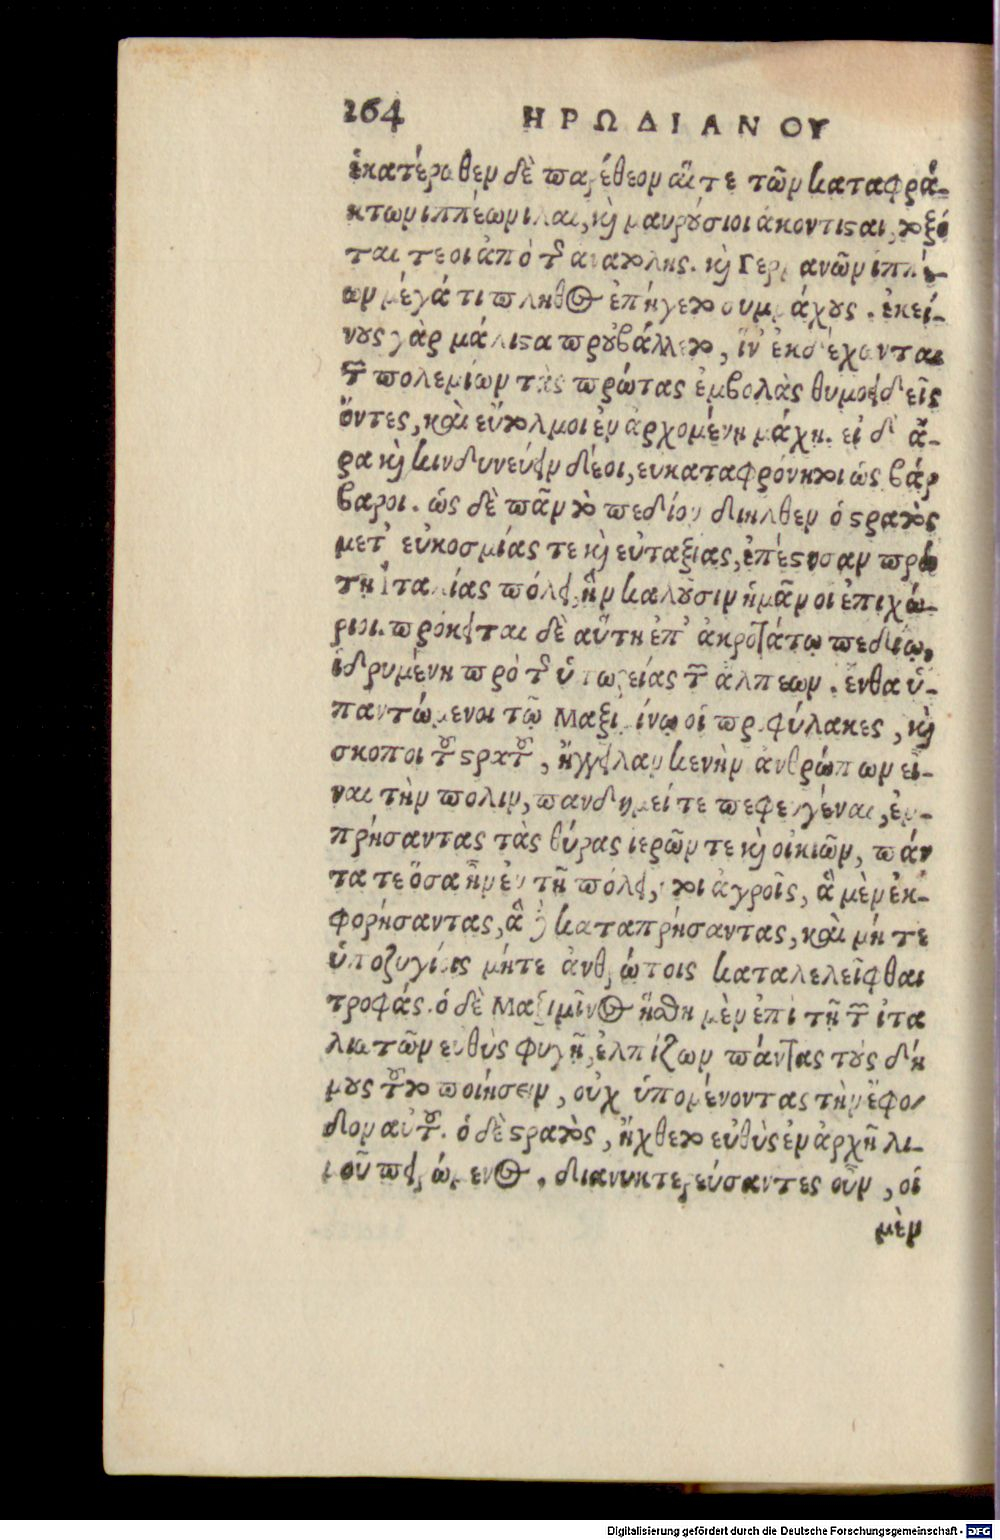 264 ΗΡΩΔΙΑΝΟΥ
ἑκατέρωθεν δὲ παρέθεον αἵ τε τῶν καταφρά-
κτων ἱππέων ἶλαι, κὶ μαυρούσιοι ἀκοντισαὶ, τοξό
ται τε οἱ ἀπὸ τῆς ἀνατολῆς. κὶ Γερμανῶν ἱππέ-
ων μέγα τι πλῆθος ἐπήγετο συμμάχους. ἐκεί-
νους γὰρ μάλιστα προυβάλλετο, ἵν' ἐκδέχωνται
τῶν πολεμίων τὰς πρώτας ἐμβολὰς θυμοειδεῖς
ὄντες, καὶ εὔτολμοι ἐν ἀρχομένῃ μάχῃ. εἰ δ' ἄ-
ρα κὶ κινδυνεύειν δέοι, ευκαταφρόνητοι ὡς βάρ
βαροι. ὡς δὲ πᾶν τὸ πεδίον διῆλθεν ὁ στρατὸς
μετ' εὐκοσμίας τε κὶ εὐταξίας, ἐπέστησαν πρώ
τῃ Ἰταλίας πόλει, ἣν καλοῦσιν ἡμᾶν οἱ ἐπιχώ-
ριοι. πρόκειται δὲ αὕτη ἐπ' ἀκροτάτῳ πεδίῳ,
ἱδρυμένη πρὸ τῆς ὑπωρείας τῶν ἄλπεων. ἔνθα ὑ-
παντώμενοι τῷ Μαξιμίνῳ οἱ προφύλακες, κὶ
σκοποὶ τοῦ στρατοῦ, ἤγγειλαν κενὴν ἀνθρώπων εἶ-
ναι τὴν πόλιν, πανδημεί τε πεφευγέναι, ἐμ-
πρήσαντας τὰς θύρας ἱερῶν τε κὶ οἰκιῶν, πάν
τα τε ὅσα ἦν ἐν τῇ πόλει, τοῖς ἀγροῖς, ἃ μὲν ἐκ-
φορήσαντας, ἃ δὲ καταπρήσαντας, καὶ μήτε
ὑποζυγίοις μήτε ἀνθρώποις καταλελεῖφθαι
τροφάς. ὁ δὲ Μαξιμῖνος ἥσθη μὲν ἐπὶ τῇ τῶν ἰτα
λιωτῶν εὐθὺς φυγῇ, ἐλπίζων πάντας τοὺς δή
μους τοῦτο ποιήσειν, οὐχ ὑπομένοντας τὴν ἔφο-
δον αὐτοῦ. ὁ δὲ στρατὸς, ἤχθετο εὐθὺς ἐν ἀρχῇ λι-
μοῦ πειρώμενος. διανυκτερεύσαντες οὖν, οἱ
μὲν
Digitalisierung gefördert durch die Deutsche Forschungsgemeinschaft - DFG